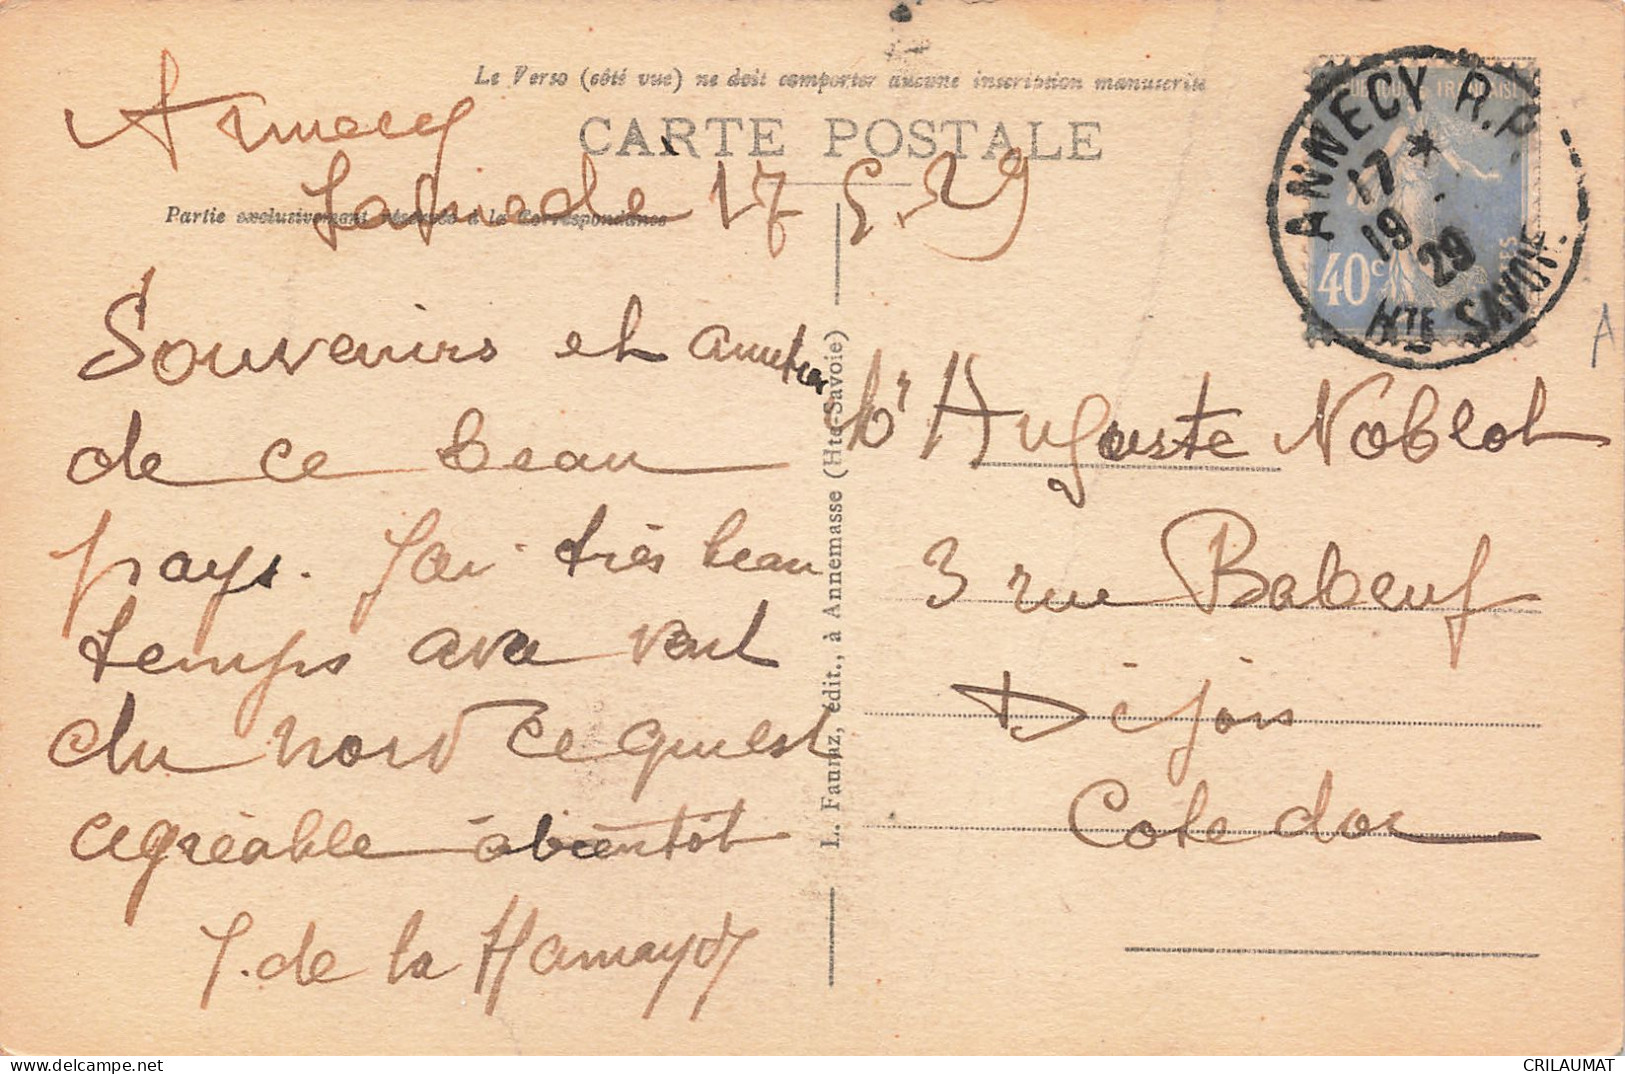 Le Verso (côté vue) ne doit comporter aucune inscription manuscrite
CARTE POSTALE
Partie exclusivement réservée à la Correspondance
Annecy
17 5.29
Souvenirs et
de ce beau
pays. J'ai très beau
temps avec vent
du nord ce qui est
agréable à bientôt
J. de la
L. Fauraz, édit., à Annemasse (Hte-Savoie)
ANNECY R.P.
17 *
19 29
HTE SAVOIE
40c
Mr Auguste Noblot
3 rue Babeuf
Dijon
Cote dor
A
CRILAUMAT